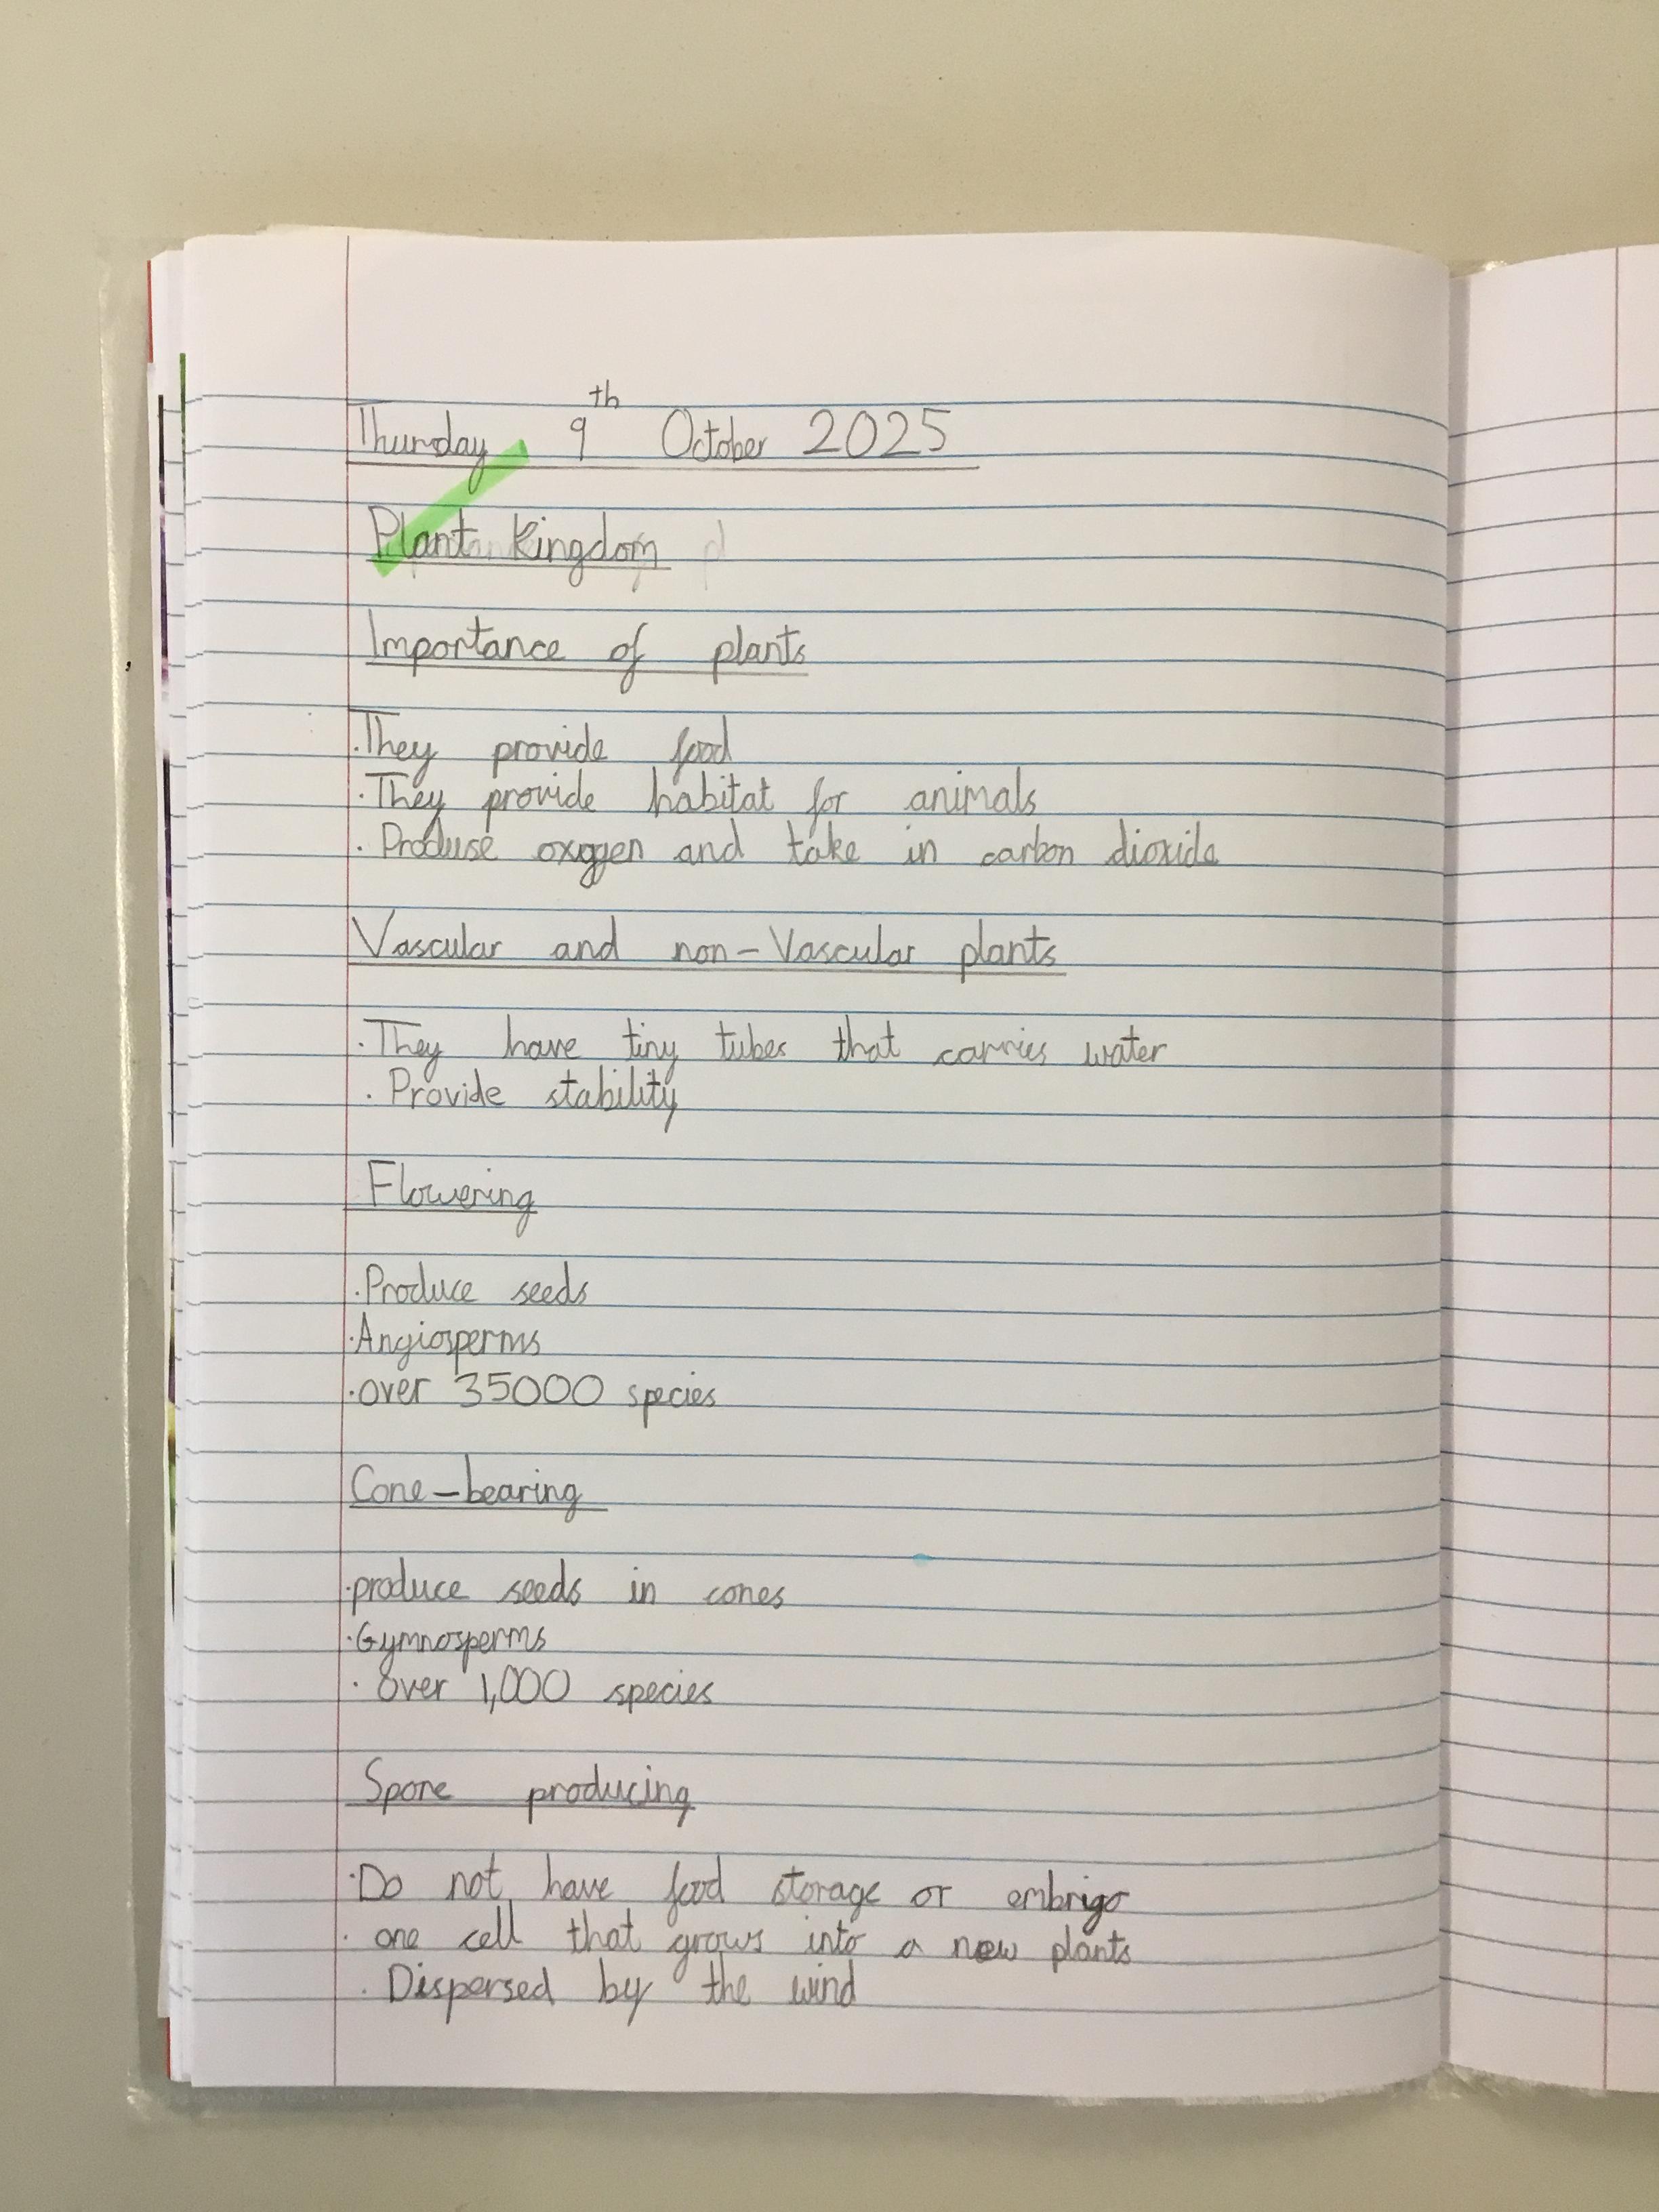 Thursday 9th October 2025
Plant Kingdom
Importance of plants
·They provide food
·They provide habitat for animals
· Produse oxygen and take in carbon dioxide
Vascular and non-Vascular plants
·They have tiny tubes that carries water
· Provide stability
Flowering
·Produce seeds
·Angiosperms
·over 35000 species
Cone-bearing
·produce seeds in cones
·Gymnosperms
· over 1,000 species
Spore producing
·Do not have food storage or embrigo
· one cell that grows into a new plants
· Dispersed by the wind